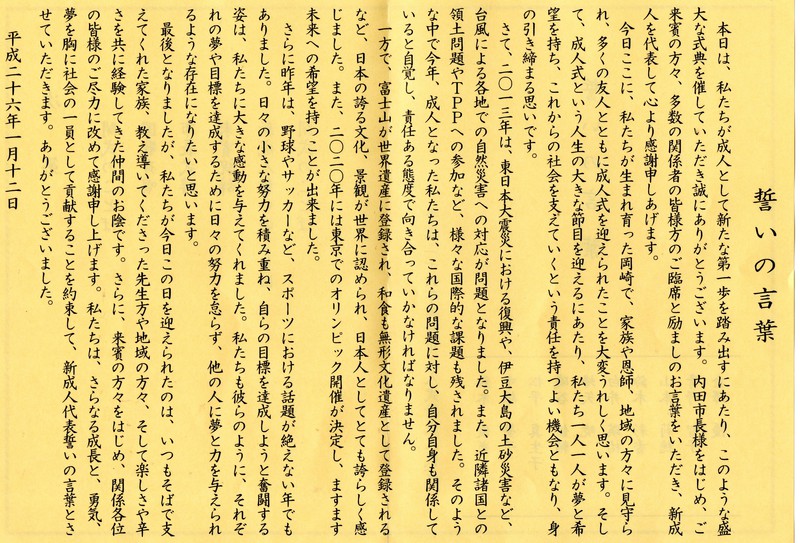 誓いの言葉
本日は、私たちが成人として新たな第一歩を踏み出すにあたり、このような盛
大な式典を催していただき誠にありがとうございます。内田市長様をはじめ、ご
来賓の方々、多数の関係者の皆様方のご臨席と励ましのお言葉をいただき、新成
人を代表して心より感謝申しあげます。
今日ここに、私たちが生まれ育った岡崎で、家族や恩師、地域の方々に見守ら
れ、多くの友人とともに成人式を迎えられたことを大変うれしく思います。そし
て、成人式という人生の大きな節目を迎えるにあたり、私たち一人一人が夢と希
望を持ち、これからの社会を支えていくという責任を持つよい機会ともなり、身
の引き締まる思いです。
さて、二〇一三年は、東日本大震災における復興や、伊豆大島の土砂災害など、
台風による各地での自然災害への対応が問題となりました。また、近隣諸国との
領土問題やTPPへの参加など、様々な国際的な課題も残されました。そのよう
な中で今年、成人となった私たちは、これらの問題に対し、自分自身も関係して
いると自覚し、責任ある態度で向き合っていかなければなりません。
一方で、富士山が世界遺産に登録され、和食も無形文化遺産として登録される
など、日本の誇る文化、景観が世界に認められ、日本人としてとても誇らしく感
じました。また、二〇二〇年には東京でのオリンピック開催が決定し、ますます
未来への希望を持つことが出来ました。
さらに昨年は、野球やサッカーなど、スポーツにおける話題が絶えない年でも
ありました。日々の小さな努力を積み重ね、自らの目標を達成しようと奮闘する
姿は、私たちに大きな感動を与えてくれました。私たちも彼らのように、それぞ
れの夢や目標を達成するために日々の努力を怠らず、他の人に夢と力を与えられ
るような存在になりたいと思います。
最後となりましたが、私たちが今日この日を迎えられたのは、いつもそばで支
えてくれた家族、教え導いてくださった先生方や地域の方々、そして楽しさや辛
さを共に経験してきた仲間のお陰です。さらに、来賓の方々をはじめ、関係各位
の皆様のご尽力に改めて感謝申し上げます。私たちは、さらなる成長と、勇気、
夢を胸に社会の一員として貢献することを約束して、新成人代表誓いの言葉とさ
せていただきます。ありがとうございました。
平成二十六年一月十二日